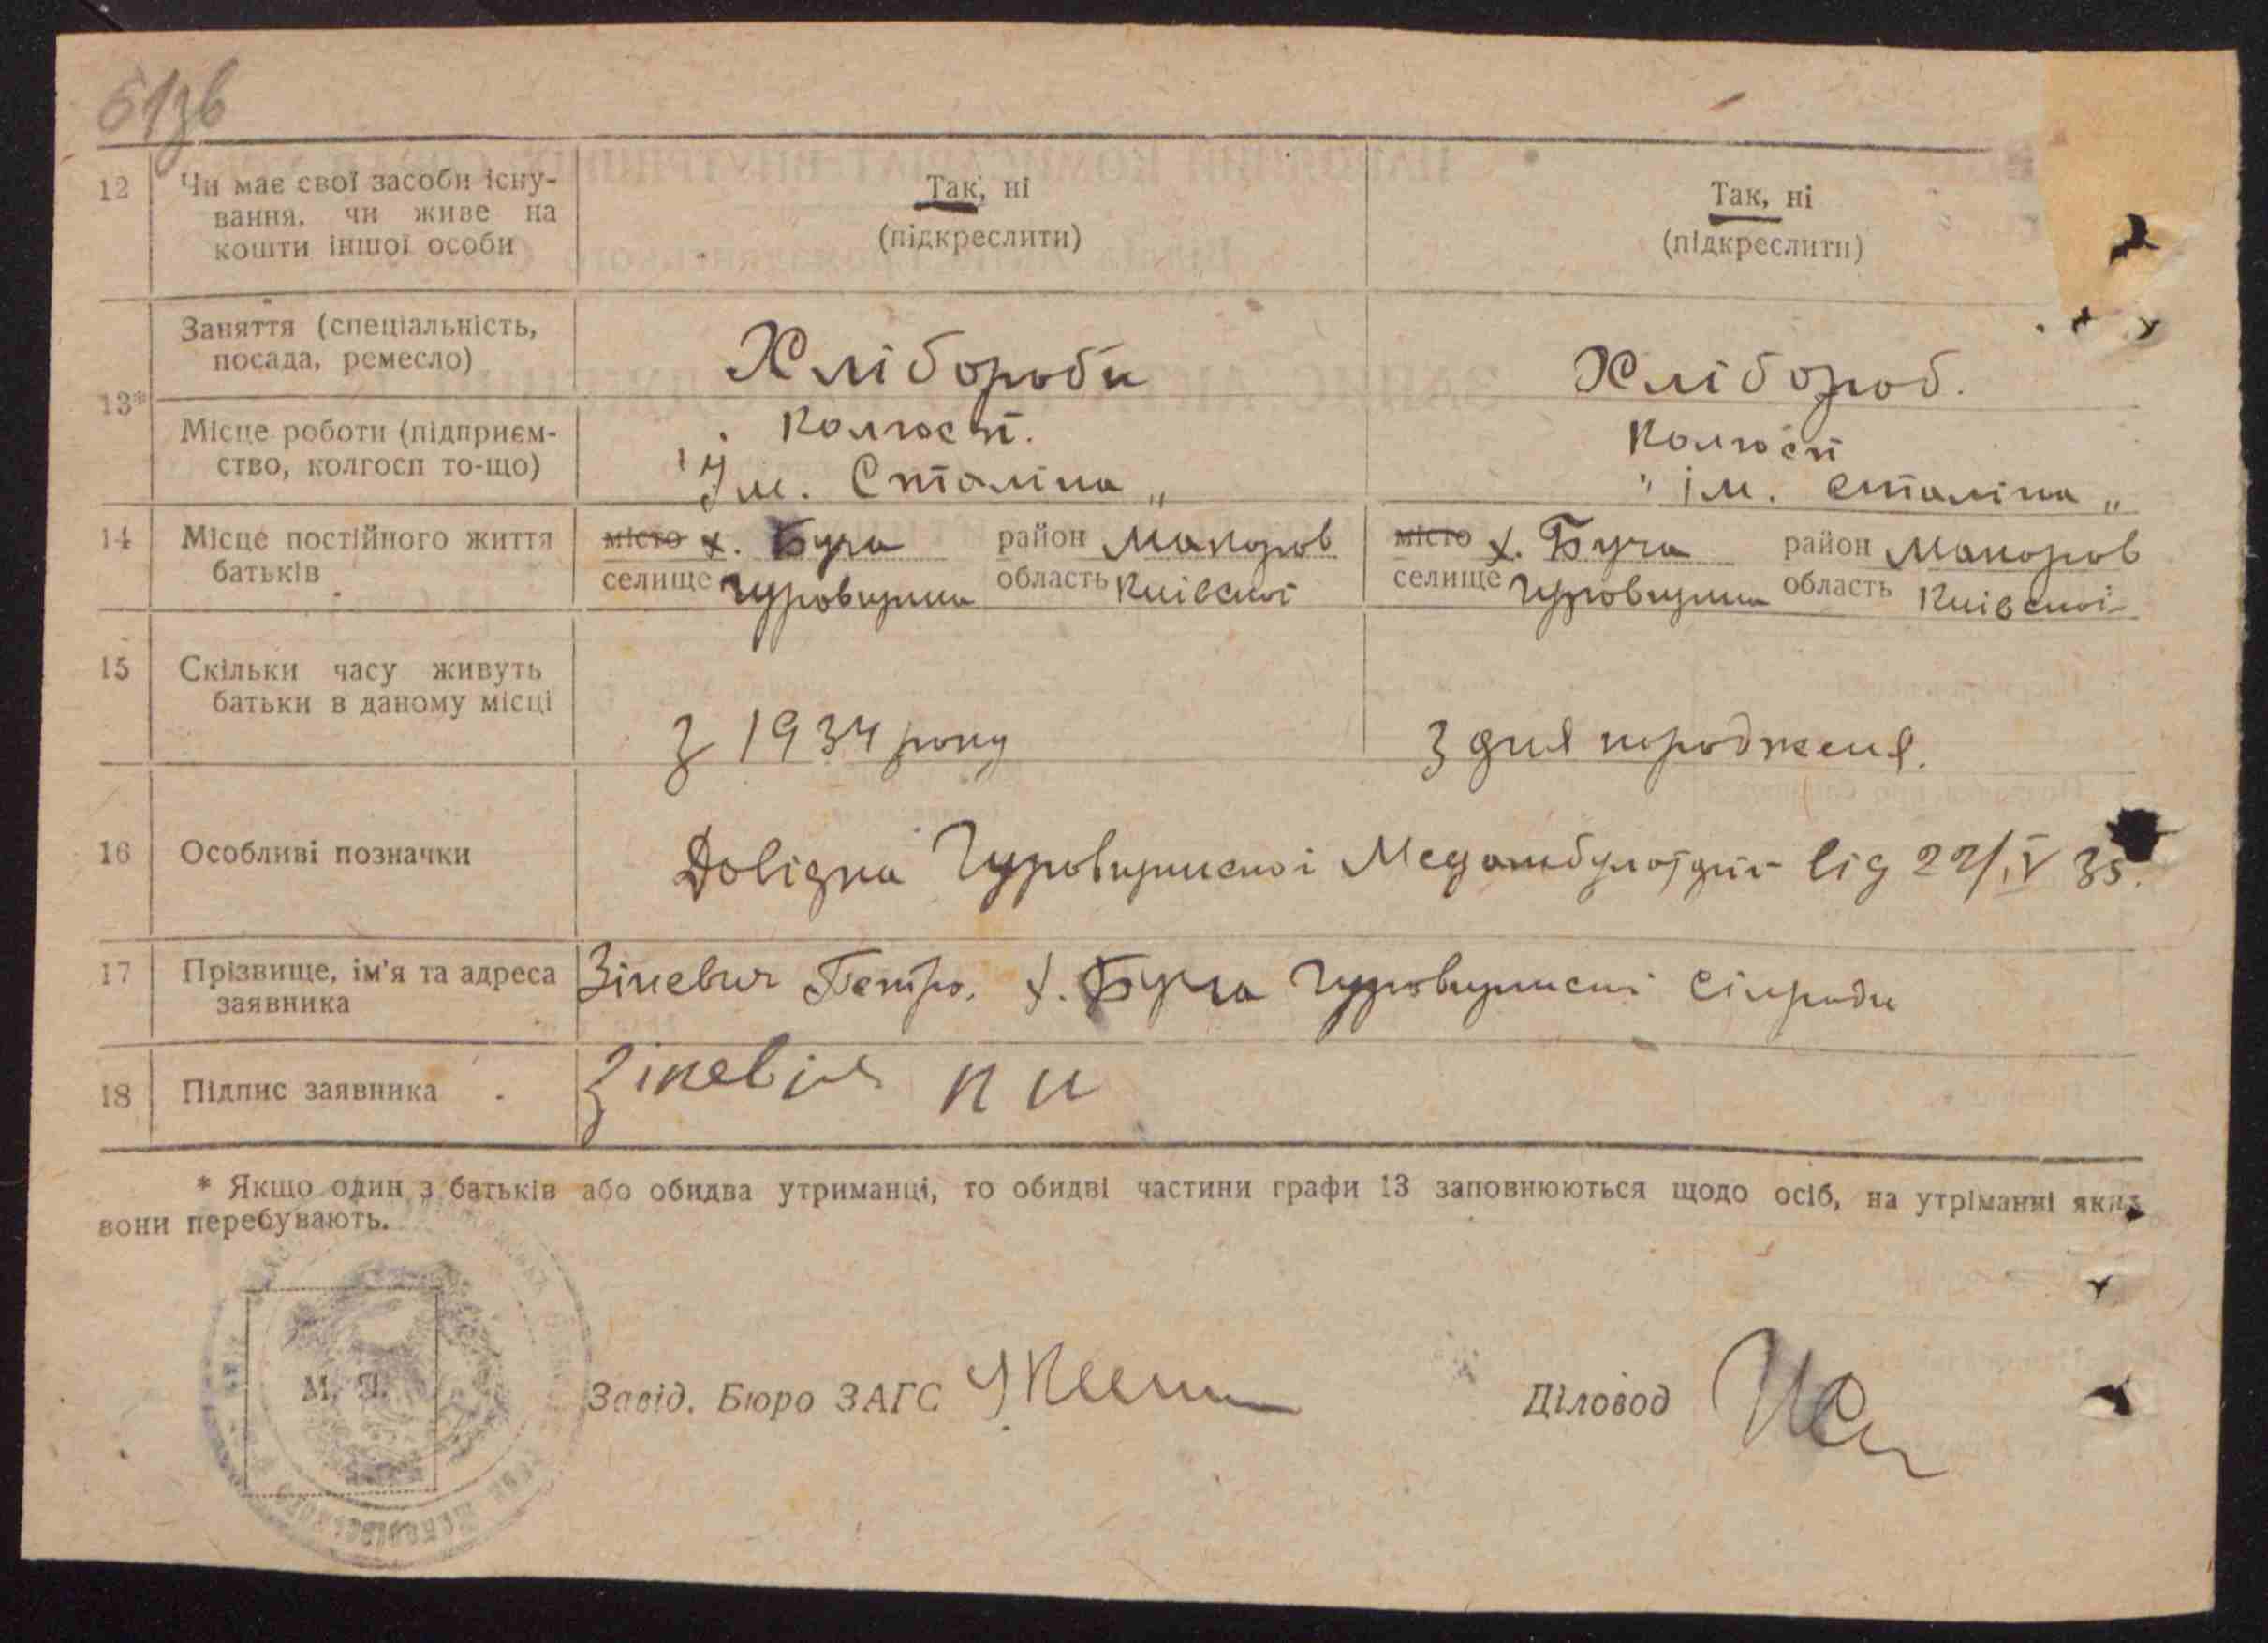 51зв
12 Чи має свої засоби існу- Так, ні Так, ні
вання. чи живе на (підкреслити) (підкреслити)
кошти іншої особи
Заняття (спеціальність, Хлібороби Хлібороб.
посада, ремесло)
13*
Місце роботи (підприєм- Колгосп. Колгосп
ство, колгосп то-що) Ім. Сталіна „ " ім. Сталіна „
14 Місце постійного життя місто х. Буча район Макаров місто х. Буча район Макаров
батьків селище Гуровщина область Київської селище Гуровщина область Київської
15 Скільки часу живуть
батьки в даному місці
З 1934 року З дня породженя.
16 Особливі позначки Довідка Гуровщинської від 22/IV 35.
17 Прізвище, ім'я та адреса Зіневич Петро. х. Буча Гуровщинської сільради
заявника
18 Підпис заявника Зіневіч П И
* Якщо один з батьків або обидва утриманці, то обидві частини графи 13 заповнюються щодо осіб, на утріманні яких
вони перебувають.
М. П.
Завід. Бюро ЗАГС Діловод